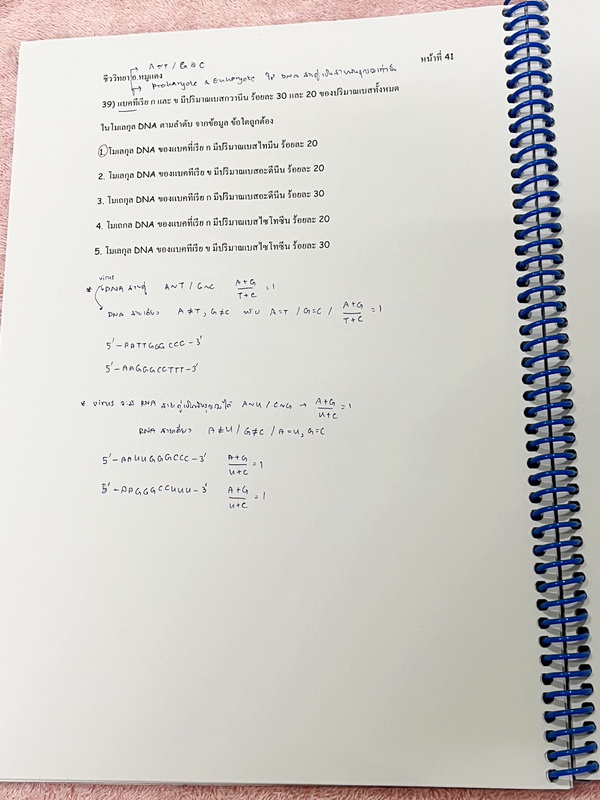 A=T / G≡C
ชีววิทยา อ.หมูแดง
หน้าที่ 41
Prokaryote & Eukaryote ใช้ DNA สายคู่เป็นสารพันธุกรรมเท่านั้น
39) แบคทีเรีย ก และ ข มีปริมาณเบสกวานีน ร้อยละ 30 และ 20 ของปริมาณเบสทั้งหมด
ในโมเลกุล DNA ตามลำดับ จากข้อมูล ข้อใดถูกต้อง
1. โมเลกุล DNA ของแบคทีเรีย ก มีปริมาณเบสไทมีน ร้อยละ 20
2. โมเลกุล DNA ของแบคทีเรีย ข มีปริมาณเบสอะดีนีน ร้อยละ 20
3. โมเลกุล DNA ของแบคทีเรีย ก มีปริมาณเบสอะดีนีน ร้อยละ 30
4. โมเลกุล DNA ของแบคทีเรีย ก มีปริมาณเบสไซโทซีน ร้อยละ 20
5. โมเลกุล DNA ของแบคทีเรีย ข มีปริมาณเบสไซโทซีน ร้อยละ 30
virus
* DNA สายคู่ A~T / G~C A+G/T+C = 1
DNA สายเดี่ยว A≠T, G≠C หรือ A=T / G=C / A+G/T+C = 1
5'-AATTGGGCCC-3'
5'-AAGGGCCTTT-3'
* virus จะมี RNA สายคู่เป็นพันธุกรรมได้ A~U / C~G → A+G/U+C = 1
RNA สายเดี่ยว A≠U / G≠C / A=U, G=C
5'-AAUUGGGCCC-3' A+G/U+C = 1
5'-AAGGGCCUUU-3' A+G/U+C = 1